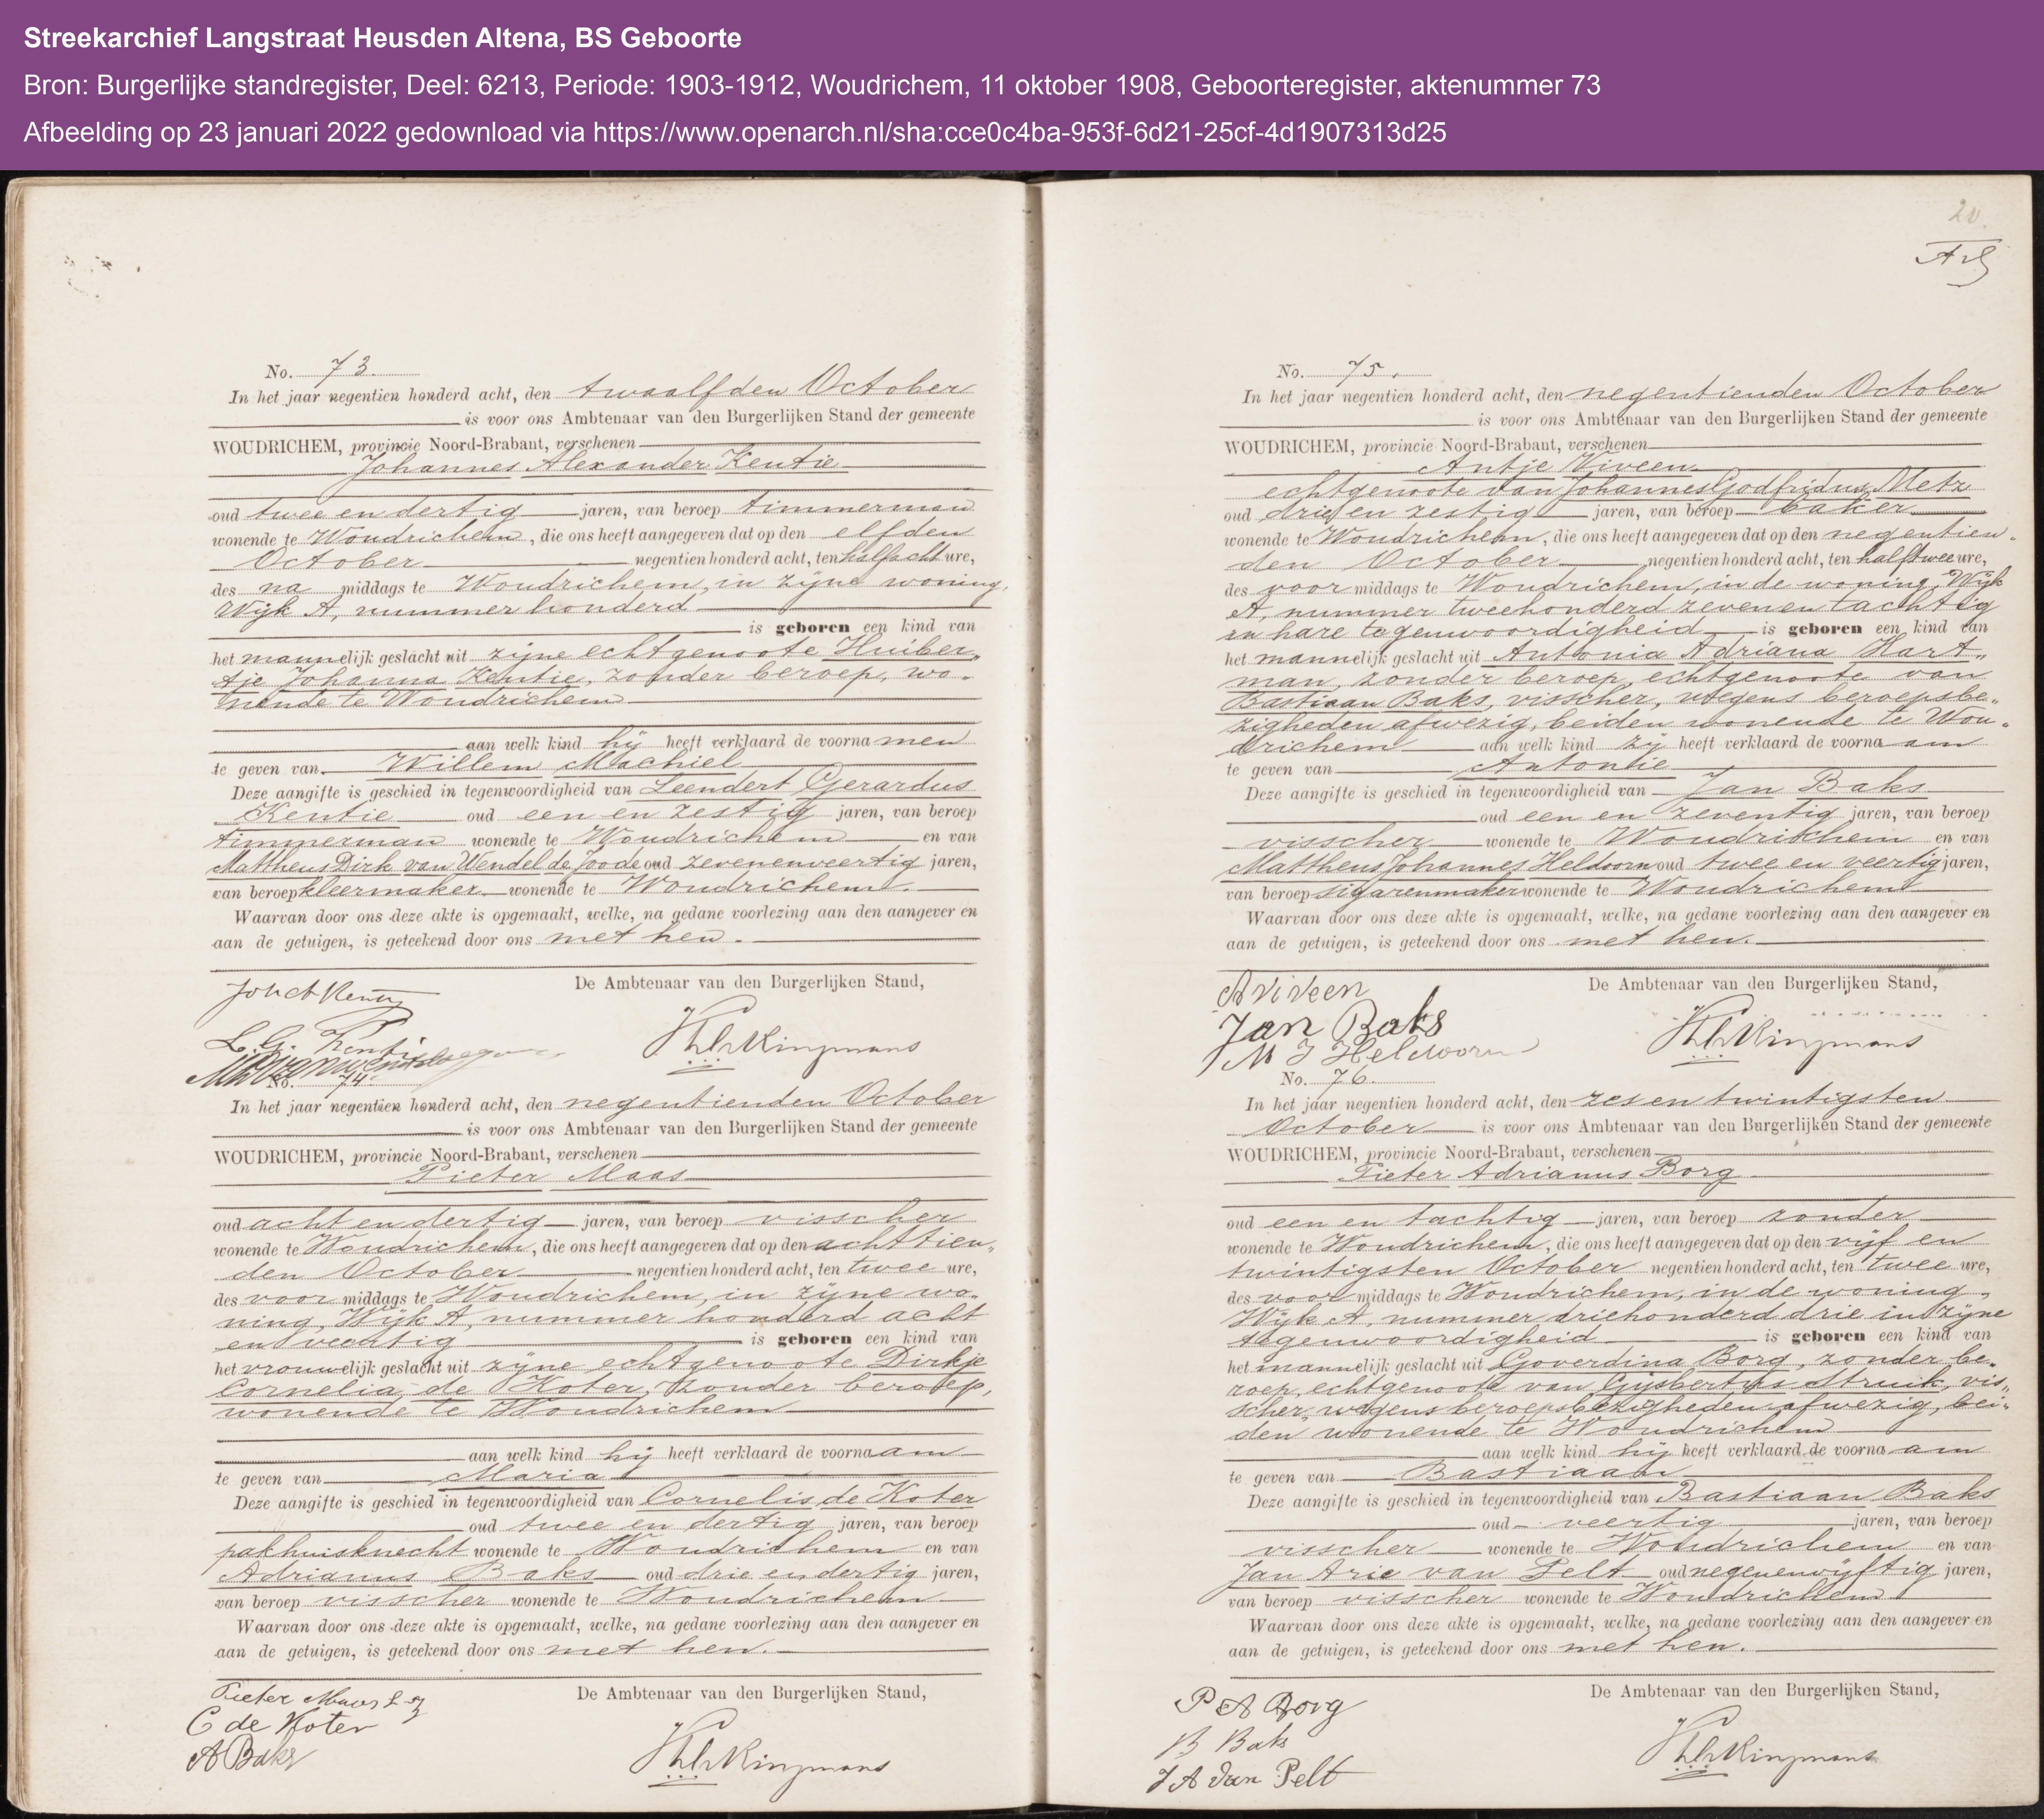 Streekarchief Langstraat Heusden Altena, BS Geboorte
Bron: Burgerlijke standregister, Deel: 6213, Periode: 1903-1912, Woudrichem, 11 oktober 1908, Geboorteregister, aktenummer 73
Afbeelding op 23 januari 2022 gedownload via https://www.openarch.nl/sha:cce0c4ba-953f-6d21-25cf-4d1907313d25
No. 73.
In het jaar negentien honderd acht, den twaalfden October
is voor ons Ambtenaar van den Burgerlijken Stand der gemeente
WOUDRICHEM, provincie Noord-Brabant, verschenen
Johannes Alexander Kentie
oud twee en dertig jaren, van beroep timmerman
wonende te Woudrichem, die ons heeft aangegeven dat op den elfden
October negentien honderd acht, ten half acht ure,
des na middags te Woudrichem, in zijne woning,
Wijk A, nummer honderd
is geboren een kind van
het mannelijk geslacht uit zijne echtgenoote Huiber„
tje Johanna Kentie, zonder beroep, wo„
nende te Woudrichem
aan welk kind hij heeft verklaard de voornamen
te geven van Willem Machiel
Deze aangifte is geschied in tegenwoordigheid van Leendert Gerardus
Kentie oud een en zestig jaren, van beroep
timmerman wonende te Woudrichem en van
Mattheus Dirk van Wendel de Joode oud zevenenveertig jaren,
van beroep kleermaker wonende te Woudrichem.
Waarvan door ons deze akte is opgemaakt, welke, na gedane voorlezing aan den aangever en
aan de getuigen, is geteekend door ons met hen.
De Ambtenaar van den Burgerlijken Stand,
L. G. Kentie
No. 74.
In het jaar negentien honderd acht, den negentienden October
is voor ons Ambtenaar van den Burgerlijken Stand der gemeente
WOUDRICHEM, provincie Noord-Brabant, verschenen
Pieter Maas
oud acht en dertig jaren, van beroep visscher
wonende te Woudrichem, die ons heeft aangegeven dat op den achttien„
den October negentien honderd acht, ten twee ure,
des voor middags te Woudrichem, in zijne wo„
ning, Wijk A, nummer honderd acht
en veertig is geboren een kind van
het vrouwelijk geslacht uit zijne echtgenoote Dirkje
Cornelia de Koter, zonder beroep,
wonende te Woudrichem
aan welk kind hij heeft verklaard de voornaam
te geven van Maria
Deze aangifte is geschied in tegenwoordigheid van Cornelis de Koter
oud twee en dertig jaren, van beroep
pakhuisknecht wonende te Woudrichem en van
Adrianus Baks oud drie en dertig jaren,
van beroep visscher wonende te Woudrichem
Waarvan door ons deze akte is opgemaakt, welke, na gedane voorlezing aan den aangever en
aan de getuigen, is geteekend door ons met hen.
De Ambtenaar van den Burgerlijken Stand,
Pieter Maas
C de Koter
A Baks
20
No. 75.
In het jaar negentien honderd acht, den negentienden October
is voor ons Ambtenaar van den Burgerlijken Stand der gemeente
WOUDRICHEM, provincie Noord-Brabant, verschenen
Antje Viveen
echtgenoote van Johannes Godfridus Metz
oud drie en zestig jaren, van beroep baker
wonende te Woudrichem, die ons heeft aangegeven dat op den negentien„
den October negentien honderd acht, ten half twee ure,
des voor middags te Woudrichem, in de woning, Wijk
A, nummer tweehonderd zevenen tachtig
in hare tegenwoordigheid is geboren een kind van
het mannelijk geslacht uit Antonia Adriana Hart„
man, zonder beroep, echtgenoote van
Bastiaan Baks, visscher, wegens beroepsbe„
zigheden afwezig, beiden wonende te Wou„
drichem aan welk kind zij heeft verklaard de voornaam
te geven van Antonie
Deze aangifte is geschied in tegenwoordigheid van Jan Baks
oud een en zeventig jaren, van beroep
visscher wonende te Woudrichem en van
Mattheus Johannes Heldoorn oud twee en veertig jaren,
van beroep sigarenmaker wonende te Woudrichem
Waarvan door ons deze akte is opgemaakt, welke, na gedane voorlezing aan den aangever en
aan de getuigen, is geteekend door ons met hen.
De Ambtenaar van den Burgerlijken Stand,
A Viveen
Jan Baks
M J Heldoorn
No. 76.
In het jaar negentien honderd acht, den zes en twintigsten
October is voor ons Ambtenaar van den Burgerlijken Stand der gemeente
WOUDRICHEM, provincie Noord-Brabant, verschenen
Pieter Adrianus Borg
oud een en tachtig jaren, van beroep zonder
wonende te Woudrichem, die ons heeft aangegeven dat op den vijf en
twintigsten October negentien honderd acht, ten twee ure,
des voor middags te Woudrichem, in de woning,
Wijk A, nummer driehonderd drie in zijne
tegenwoordigheid is geboren een kind van
het mannelijk geslacht uit Goverdina Borg, zonder be„
roep, echtgenoote van Gijsbertus Struik, vis„
scher, wegens beroepsbezigheden afwezig, bei„
den wonende te Woudrichem
aan welk kind hij heeft verklaard de voornaam
te geven van Bastiaan
Deze aangifte is geschied in tegenwoordigheid van Bastiaan Baks
oud veertig jaren, van beroep
visscher wonende te Woudrichem en van
Jan Arie van Pelt oud negenenvijftig jaren,
van beroep visscher wonende te Woudrichem
Waarvan door ons deze akte is opgemaakt, welke, na gedane voorlezing aan den aangever en
aan de getuigen, is geteekend door ons met hen.
De Ambtenaar van den Burgerlijken Stand,
P A Borg
B Baks
J A van Pelt